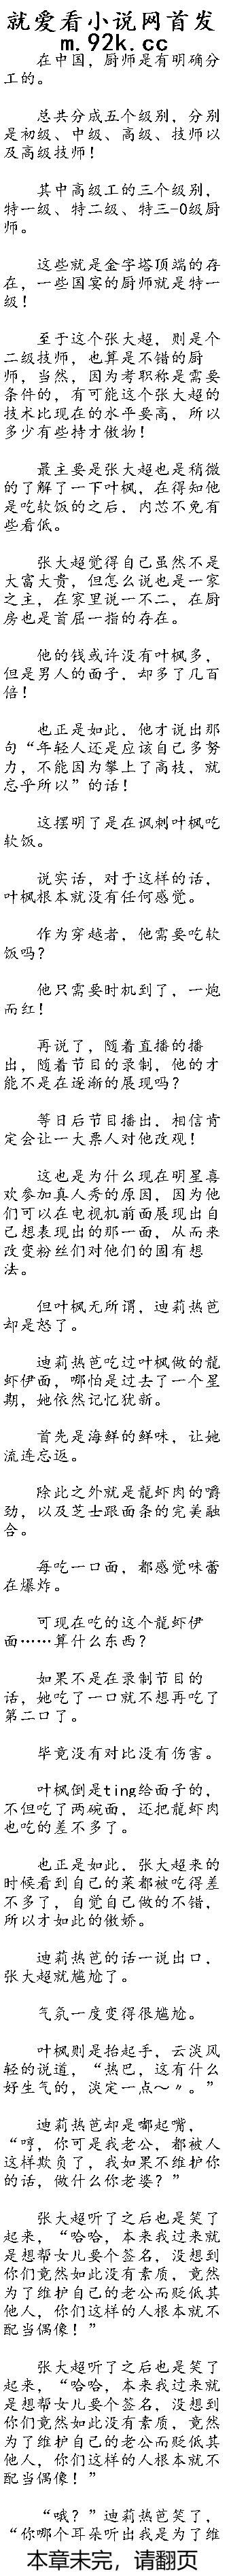 就爱看小说网首发
m.92k.cc
在中国，厨师是有明确分
工的。
总共分成五个级别，分别
是初级、中级、高级、技师以
及高级技师！
其中高级工的三个级别，
特一级、特二级、特三-0级厨
师。
这些就是金字塔顶端的存
在，一些国宴的厨师就是特一
级！
至于这个张大超，则是个
二级技师，也算是不错的厨
师，当然，因为考职称是需要
条件的，有可能这个张大超的
技术比现在的水平要高，所以
多少有些恃才傲物！
最主要是张大超也是稍微
的了解了一下叶枫，在得知他
是吃软饭的之后，内芯不免有
些看低。
张大超觉得自己虽然不是
大富大贵，但怎么说也是一家
之主，在家里说一不二，在厨
房也是首屈一指的存在。
他的钱或许没有叶枫多，
但是男人的面子，却多了几百
倍！
也正是如此，他才说出那
句“年轻人还是应该自己多努
力，不能因为攀上了高枝，就
忘乎所以”的话！
这摆明了是在讽刺叶枫吃
软饭。
说实话，对于这样的话，
叶枫根本就没有任何感觉。
作为穿越者，他需要吃软
饭吗？
他只需要时机到了，一炮
而红！
再说了，随着直播的播
出，随着节目的录制，他的才
能不是在逐渐的展现吗？
等日后节目播出，相信肯
定会让一大票人对他改观！
这也是为什么现在明星喜
欢参加真人秀的原因，因为他
们可以在电视机前面展现出自
己想表现出的那一面，从而来
改变粉丝们对他们的固有想
法。
但叶枫无所谓，迪莉热芭
却是怒了。
迪莉热芭吃过叶枫做的龍
虾伊面，哪怕是过去了一个星
期，她依然记忆犹新。
首先是海鲜的鲜味，让她
流连忘返。
除此之外就是龍虾肉的嚼
劲，以及芝士跟面条的完美融
合。
每吃一口面，都感觉味蕾
在爆炸。
可现在吃的这个龍虾伊
面……算什么东西？
如果不是在录制节目的
话，她吃了一口就不想再吃了
第二口了。
毕竟没有对比没有伤害。
叶枫倒是ting给面子的，
不但吃了两碗面，还把龍虾肉
也吃的差不多了。
也正是如此，张大超来的
时候看到自己的菜都被吃得差
不多了，自觉自己做的不错，
所以才如此的傲娇。
迪莉热芭的话一说出口，
张大超就尴尬了。
气氛一度变得很尴尬。
叶枫则是抬起手，云淡风
轻的说道，“热巴，这有什么
好生气的，淡定一点～〃。”
迪莉热芭却是嘟起嘴，
“哼，你可是我老公，都被人
这样欺负了，我如果不维护你
的话，做什么你老婆？”
张大超听了之后也是笑了
起来，“哈哈，本来我过来就
是想帮女儿要个签名，没想到
你们竟然如此没有素质，竟然
为了维护自己的老公而贬低其
他人，你们这样的人根本就不
配当偶像！”
张大超听了之后也是笑了
起来，“哈哈，本来我过来就
是想帮女儿要个签名，没想到
你们竟然如此没有素质，竟然
为了维护自己的老公而贬低其
他人，你们这样的人根本就不
配当偶像！”
“哦？”迪莉热芭笑了，
“你哪个耳朵听出我是为了维
本章未完，请翻页